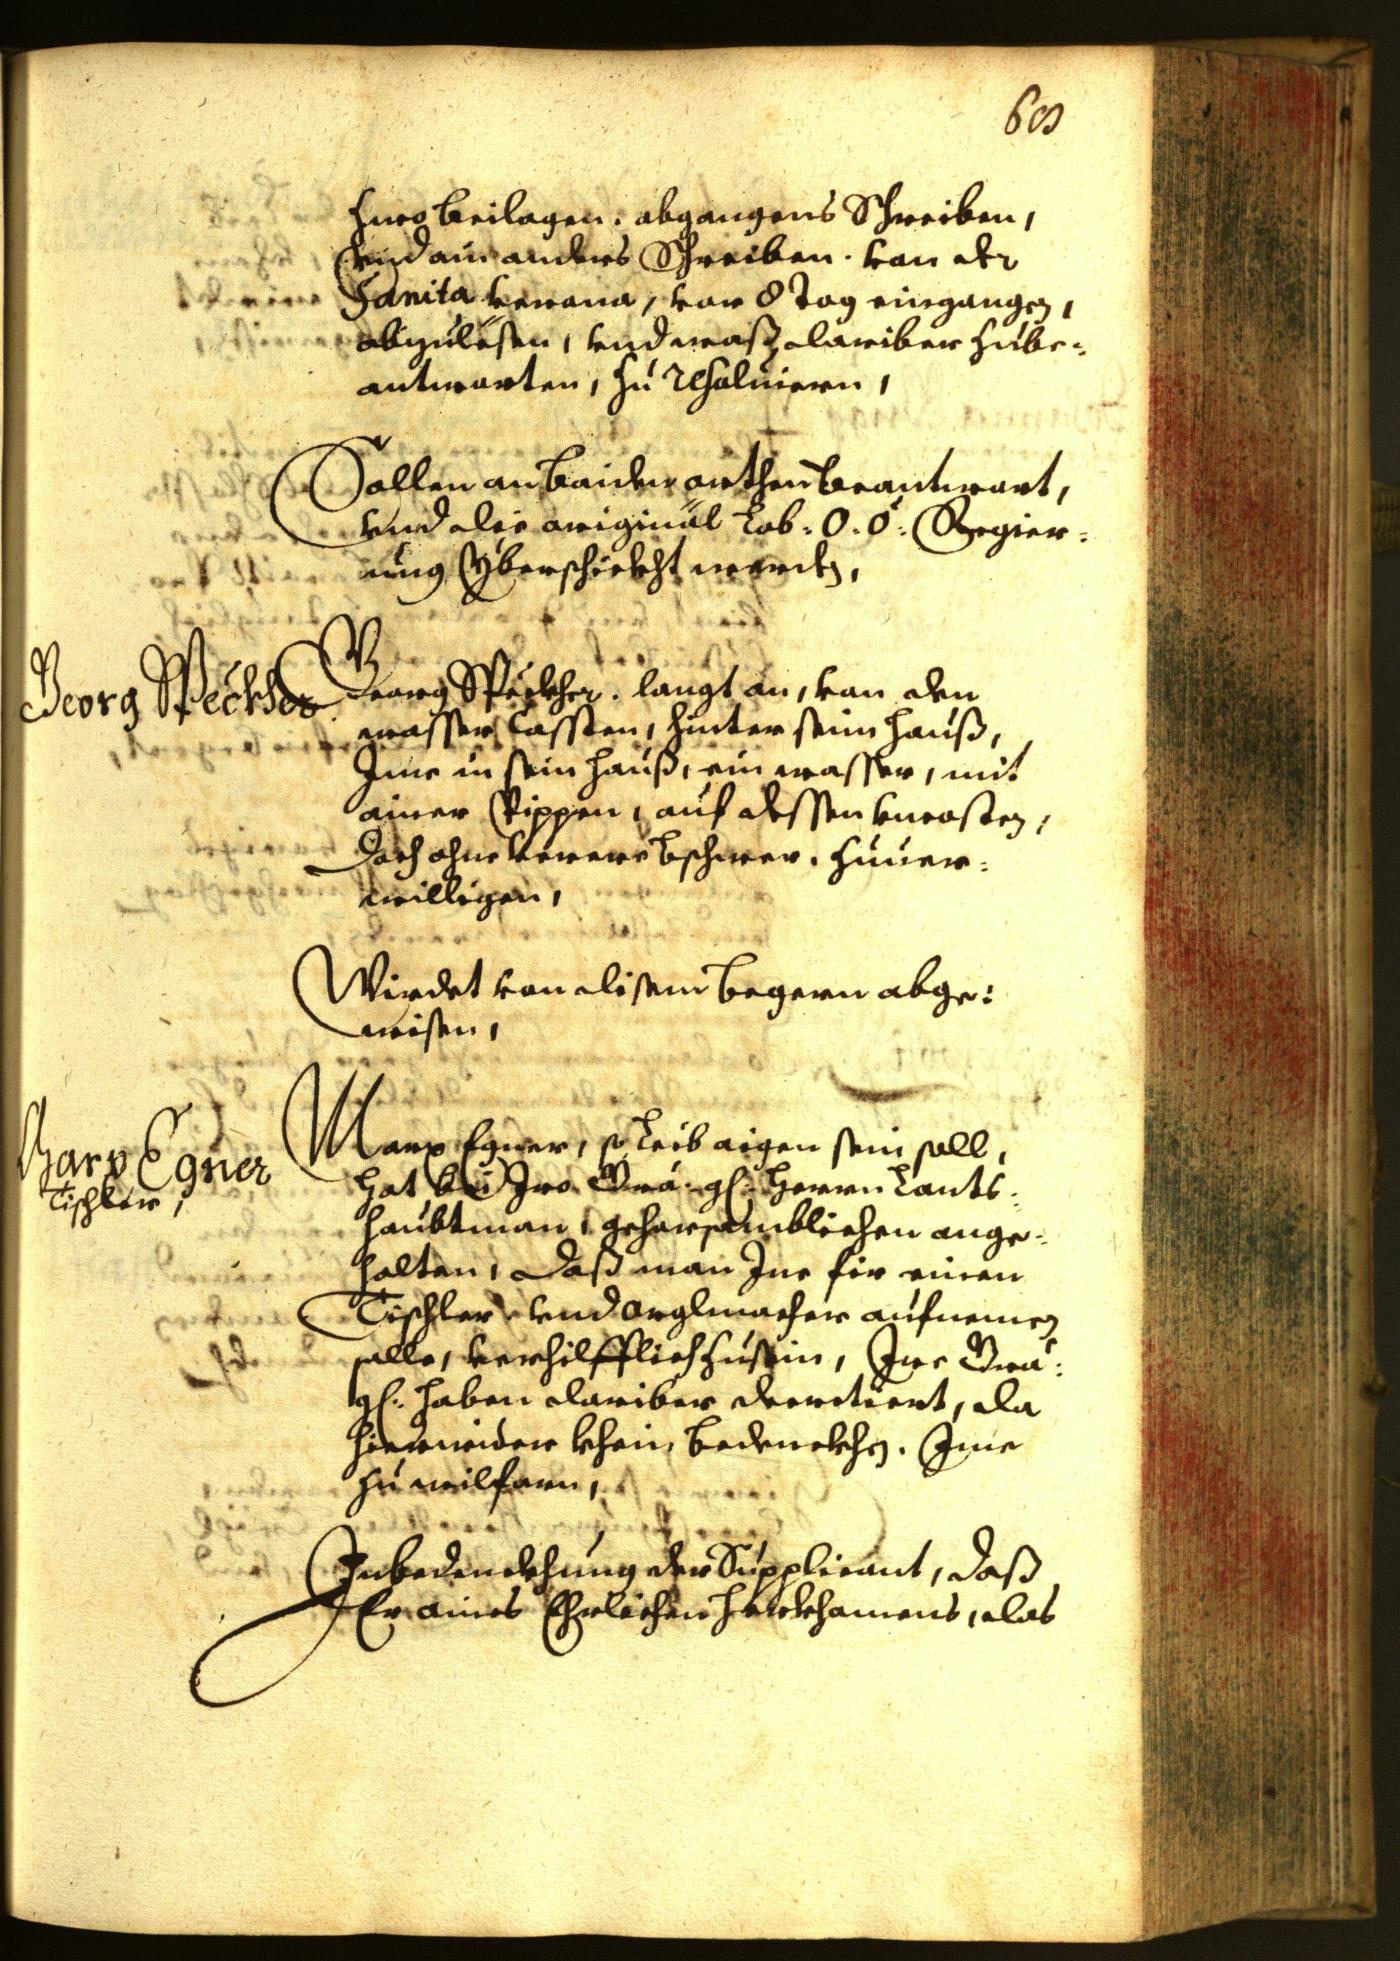 60
zwo beilagen. abgangens Schreiben,
vnd ain anders Schreiben. von der
Sanita verona, vor 8 Tag eingangen,
abzulesen, vnd waß dariber zube-
antworten, zu resoluiern,
Sollen an baiden orthen beantwort,
vnd die original Lob: O: Ö: Regier-
ung yberschickht werden,
Georg Speckher
Georg Speckher. langt an, von den
wasser Cassten, hinter seim hauß,
Ime in sein hauß, ein wasser, mit
ainer Pippen, auf dessen vncosten,
doch ohne verere bschwer. zuuer-
willigen,
Wirdet von disem begern abge-
wisen,
Marx Egner
Tischler,
Marx Egner, so Leib aigen sein soll,
hat bei Iro Gna: gl: Herrn Lants-
haubtman, gehorsamblichen ange-
halten, daß man Ine fir einen
Tischler vnd Orglmacher aufnemen
solle, verhilfflich zusein, Ire Gna:
gl: haben dariber decretiert, da
hierwider khein bedenckhen. Ime
zu wilfarn,
In bedenckhung der Supplicant, daß
Er aines Ehrlichen herkhomens, das